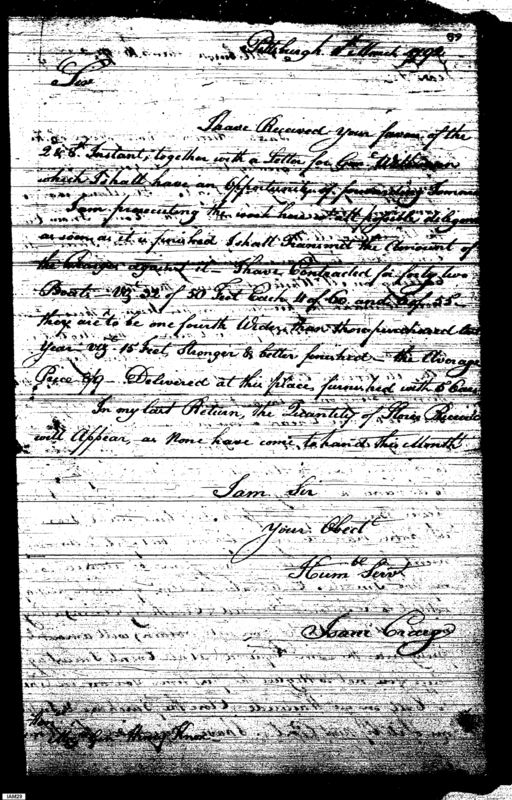 89
Pittsburgh March 1792
Sir
I have Received your favour of the
2 & 3d Instant, together with a Letter for Genl Wilkinson
which I shall have an Opportunity of forwarding
I am prosecuting the work here with all possible diligence
as soon as it is finished I shall Transmit the Amount of
the Charges against it – I have Contracted for forty two
Boats – viz 32 of 50 Feet Each 4 of 60 and 6 of 55 –
they are to be one fourth Wider than those purchased last
Year – viz – 15 Feet, Stronger & better finished – the Average
Price Delivered at this place, furnished with 5 Oars
In my last Return, the Quantity of Stores Received
will Appear, as None have come to hand this Month
I am Sir
Your Obedt
Humble Servt
Isaac Craig
Honl
Henry Knox
IAM29